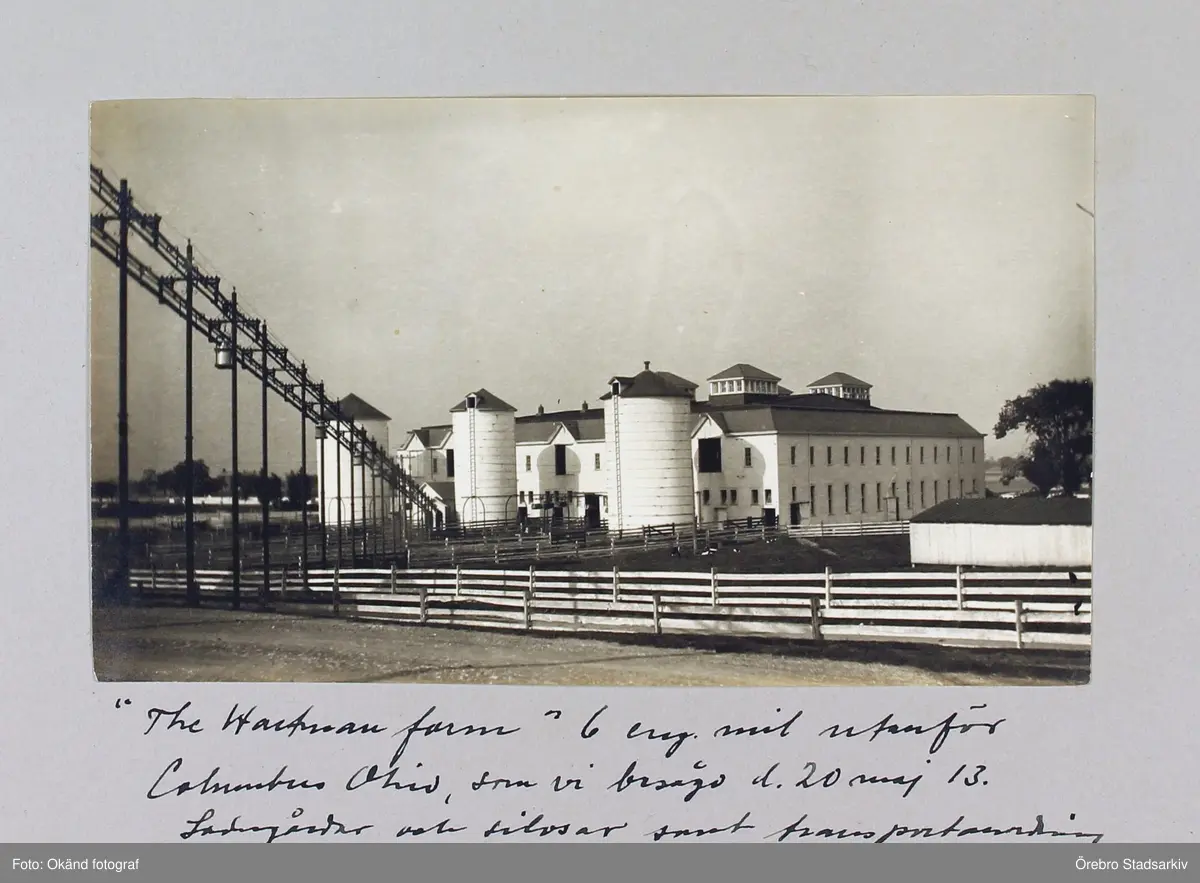 "The Hartman farm" 6 eng. mil utanför
Columbus Ohio, som vi besågo d. 20 maj 13.
Ladugårdar och silosar samt transportanordning
Foto: Okänd fotograf
Örebro Stadsarkiv